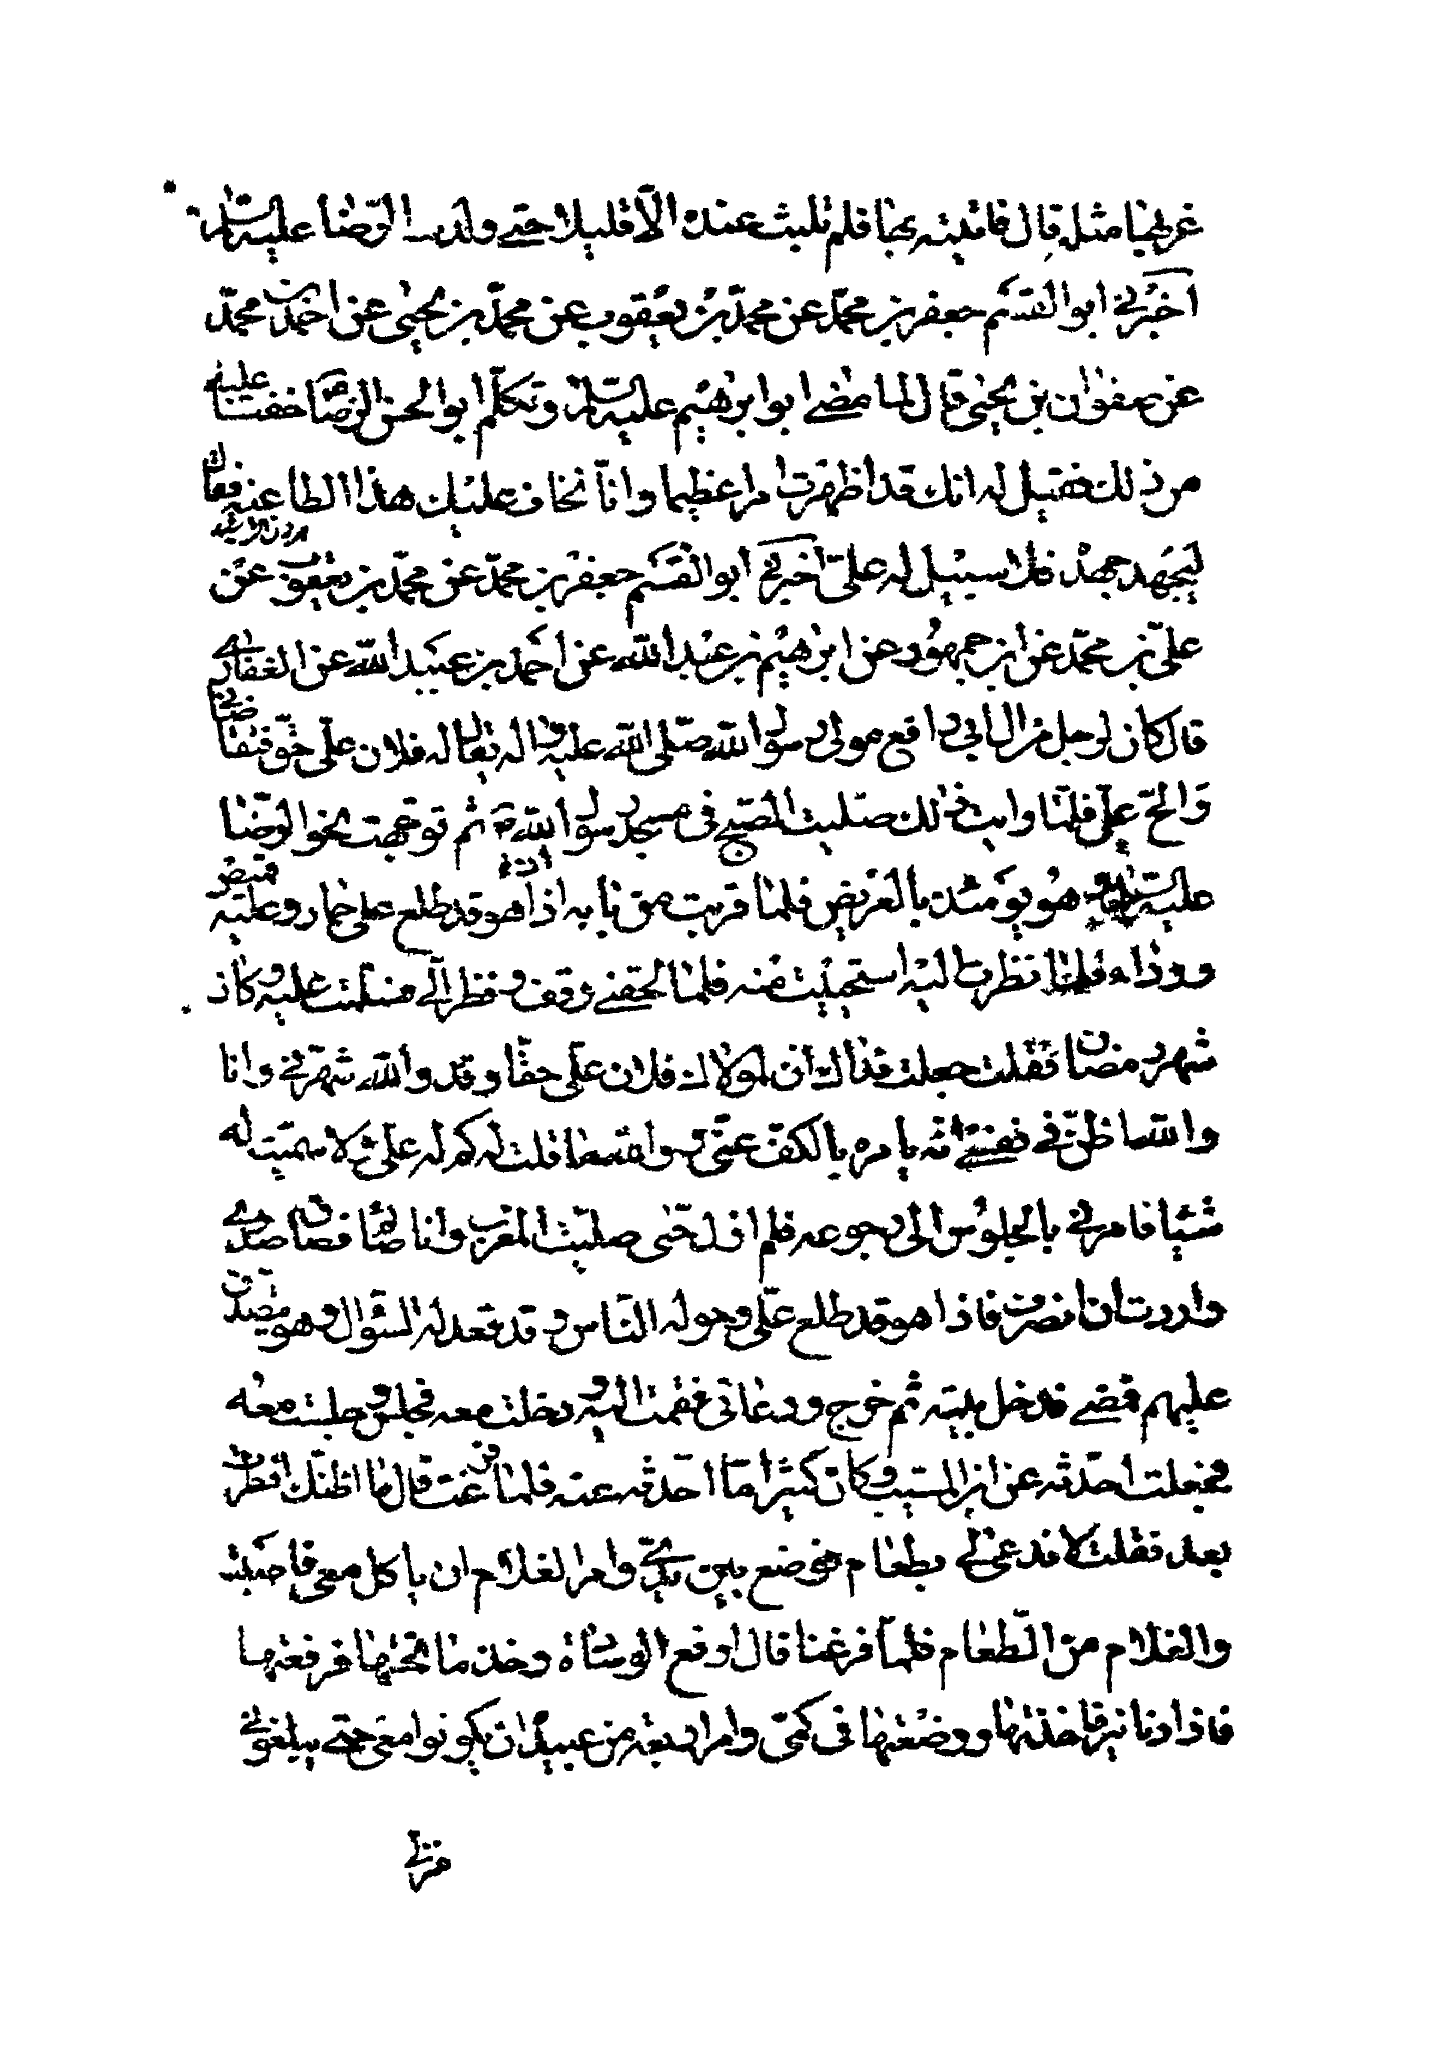 غربها مثله قال فاتيته بها فلم تلبث عنده الا قليلا حتى ولدت الرضا عليه السلام
اخبرني ابو القسم جعفر بن محمد عن محمد بن يعقوب عن محمد بن يحيى عن احمد بن محمد
عن صفوان بن يحيى قال لما مضى ابو ابرهيم عليه السلام وتكلم ابو الحسن الرضا خفنا عليه
من ذلك فقيل له انك قد اظهرت امرا عظيما وانا نخاف عليك هذا الطاغية فقال
هرون الرشيد
ليجهد جهده فلا سبيل له علي اخبرني ابو القسم جعفر بن محمد عن محمد بن يعقوب عن
علي بن محمد عن ابن جمهور عن ابرهيم بن عبد الله عن احمد بن عبيد الله عن الغفاري
قال كان لرجل من ال ابي رافع مولى رسول الله صلى الله عليه واله يقال له فلان علي حق فتقاضاني
والح علي فلما رايت ذلك صليت الصبح في مسجد رسول الله ص ثم توجهت نحو الرضا
عليه السلام وهو يومئذ بالعريض فلما قربت من بابه اذا هو قد طلع على حمار وعليه قميص
ورداء فلما نظرت اليه استحييت منه فلما لحقني وقف ونظر الي فسلمت عليه وكان
شهر رمضان فقلت جعلت فداك ان لمولاك فلان علي حقا وقد والله شهرني وانا
والله اظن في نفسي انه يامره بالكف عني و والله ما قلت له كم له علي ولا سميت له
شيئا فامرني بالجلوس الى رجوعه فلم ازل حتى صليت المغرب وانا صائم فضاق صدري
واردت ان انصرف فاذا هو قد طلع علي وحوله الناس وقد قعد له السؤال وهو يتصدق
عليهم فمضى فدخل بيته ثم خرج ودعاني فقمت اليه ودخلت معه فجلس وجلست معه
فجعلت احدثه عن ابن المسيب وكان كثيرا ما احدثه عنه فلما فرغت قال ما اظنك افطرت
بعد فقلت لا فدعى لي بطعام فوضع بين يدي وامر الغلام ان ياكل معي فاصبت
والغلام من الطعام فلما فرغنا قال ارفع الوسادة وخذ ما تحتها فرفعتها
فاذا دنانير فاخذتها ووضعتها في كمي وامر اربعة من عبيده ان يكونوا معي حتى يبلغوني
منزلي